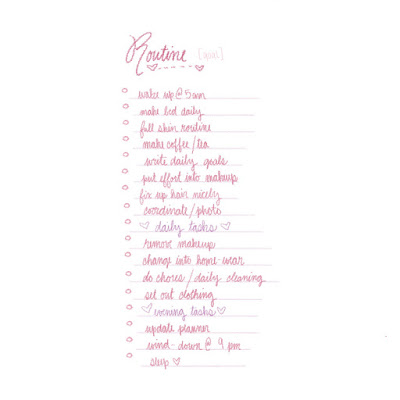 Routine [goal]
wake up @ 5am
make bed daily
full skin routine
make coffee/tea
write daily goals
put effort into makeup
fix up hair nicely
coordinate/photo
♡ daily tasks ♡
remove makeup
change into home-wear
do chores/daily cleaning
set out clothing
♡ evening tasks ♡
update planner
wind-down @ 9 pm
sleep ♡